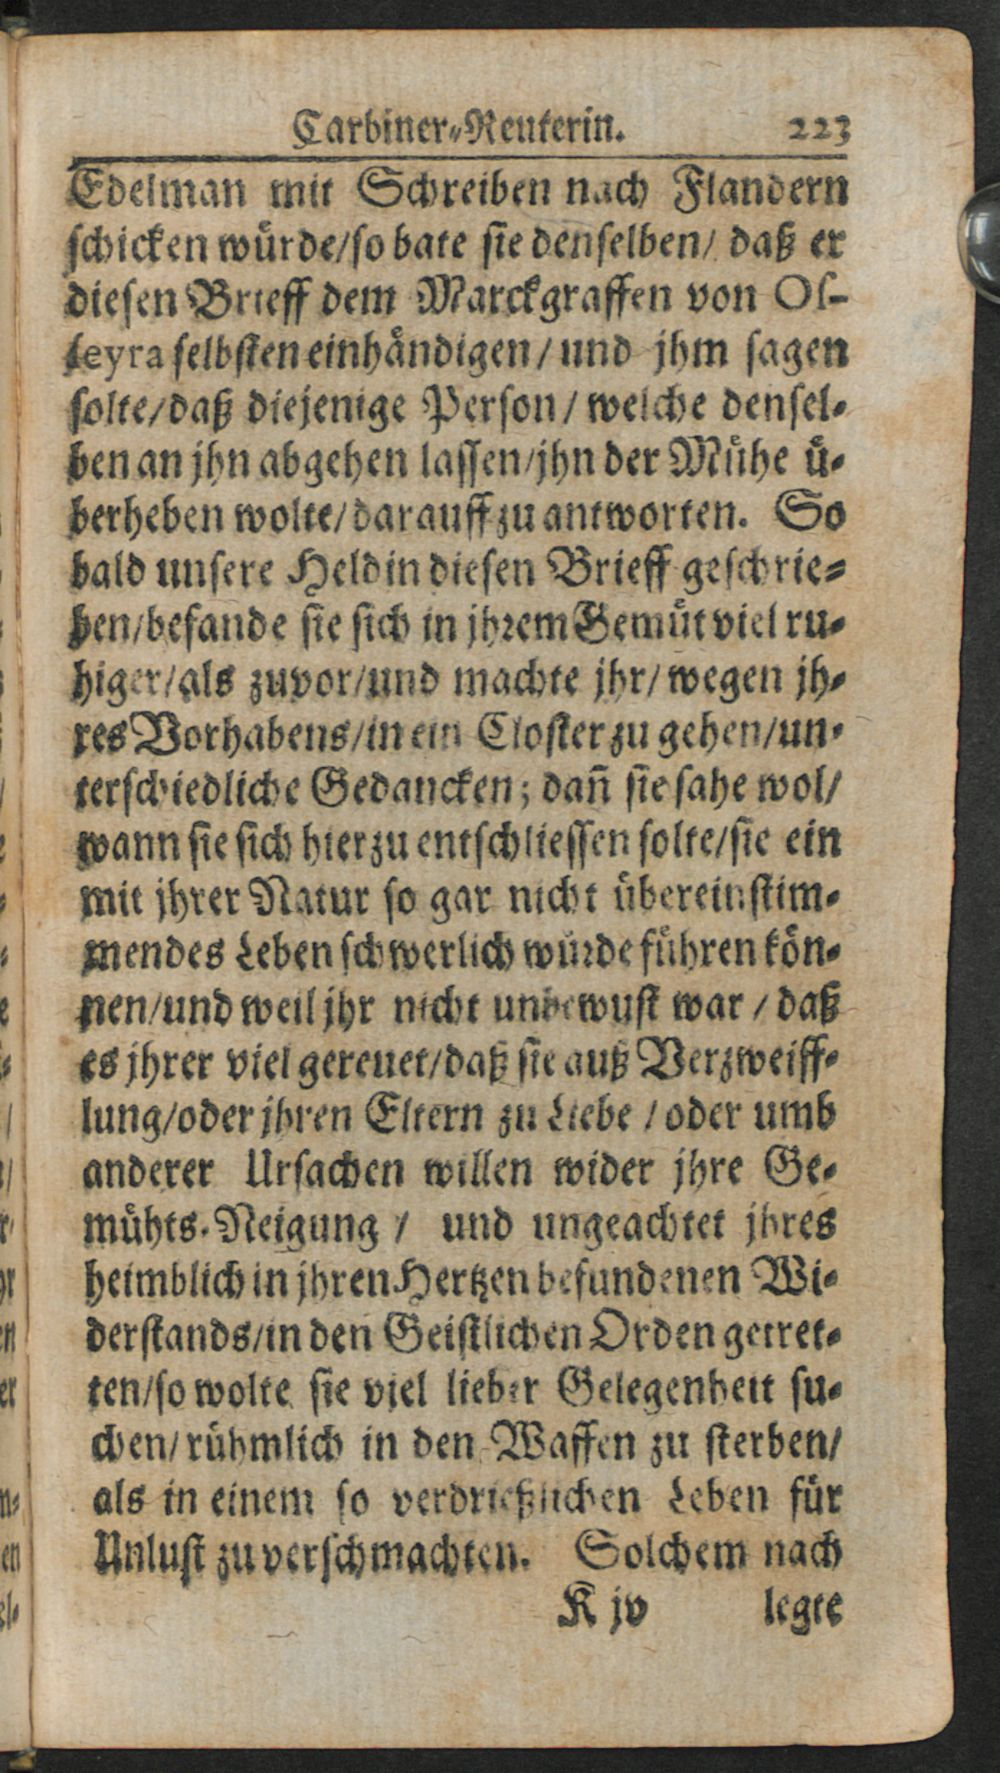 Carbiner-Reuterin. 223
Edelman mit Schreiben nach Flandern
schicken würde/so bate sie denselben/ daß er
diesen Brieff dem Marckgraffen von Os-
seyra selbsten einhändigen/und jhm sagen
solte/daß diejenige Person/welche densel-
ben an jhn abgehen lassen/jhn der Mühe ü-
berheben wolte/darauff zu antworten. So
bald unsere Heldin diesen Brieff geschrie-
ben/befande sie sich in jhrem Gemüt viel ru-
higer/als zuvor/und machte jhr/wegen jh-
res Vorhabens/in ein Closter zu gehen/un-
terschiedliche Gedancken; dañ sie sahe wol/
wann sie sich hierzu entschliessen solte/sie ein
mit jhrer Natur so gar nicht übereinstim-
mendes Leben schwerlich würde führen kön-
nen/und weil jhr nicht unbewust war/daß
es jhrer viel gereuet/daß sie auß Verzweiff-
lung/oder jhren Eltern zu Liebe/oder umb
anderer Ursachen willen wider jhre Ge-
mühts-Neigung/ und ungeachtet jhres
heimblich in jhren Hertzen befundenen Wi-
derstands/in den Geistlichen Orden getret-
ten/so wolte sie viel lieber Gelegenheit su-
chen/rühmlich in den Waffen zu sterben/
als in einem so verdrießlichen Leben für
Unlust zu verschmachten. Solchem nach
K jv legte